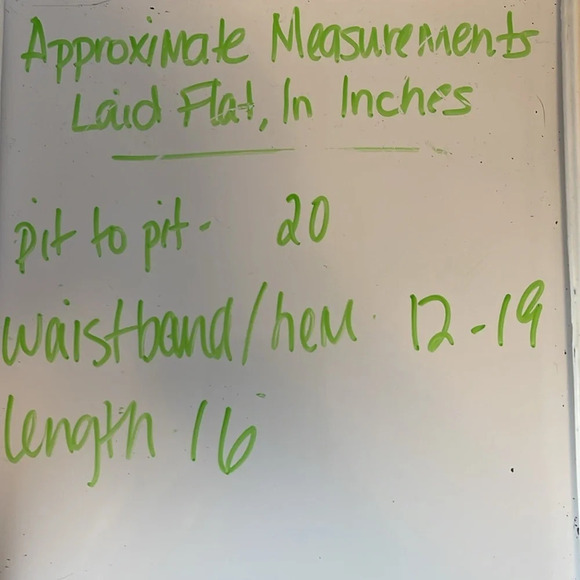 Approximate Measurements
Laid Flat, In Inches
pit to pit - 20
waistband/hem - 12-19
length 16